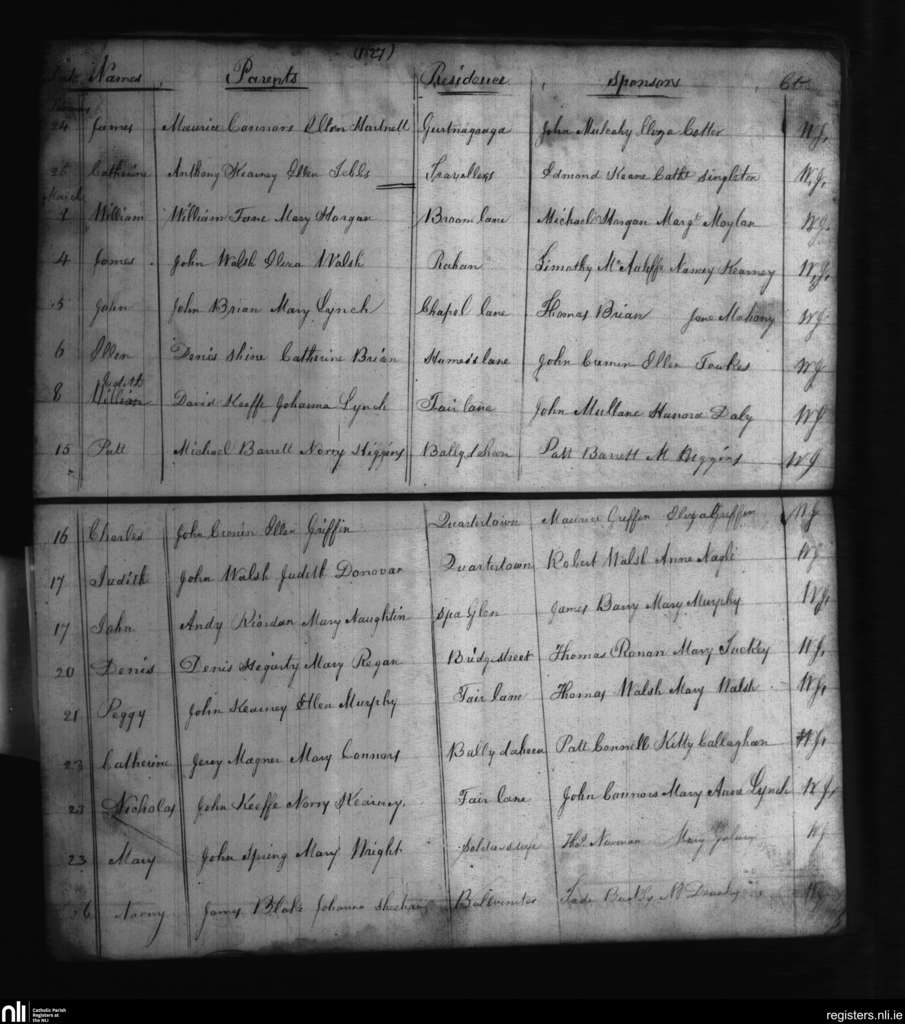 (127)
Date Names Parents Residence Sponsors
24 James Maurice Connors Ellen Hartnell Gurtnagraga John Mulcahy Eliza Cotter W.J.
25 Catherine Anthony Kearney Ellen Tebbs Travellers Edmond Keane Cathe Singleton W.J.
March
1 William William Tane Mary Horgan Broom lane Michael Horgan Margt Moylan W.J.
4 James John Walsh Eliza Walsh Rahan Timothy McAuliffe Nancy Kearney W.J.
5 John John Brian Mary Lynch Chapel lane Thomas Brian Jane Mahony W J
6 Ellen Denis Shine Catherine Brian Humes's lane John Cremin Ellen Foukes W J
Judith
8 William David Keeffe Johanna Lynch Fair lane John Mullane Hanora Daly W J
15 Patt Michael Barrett Norry Higgins Ballydahan Patt Barrett M Higgins W J
16 Charles John Cronin Ellen Griffin Quartertown Maurice Griffin Eliza Griffin W J
17 Judith John Walsh Judith Donovan Quartertown Robert Walsh Anne Nagle W J
17 John Andy Riordan Mary Naughtin Spa Glen James Barry Mary Murphy W J,
20 Denis Denis Hegarty Mary Regan Bridge street Thomas Ronan Mary Tuckey W J,
21 Peggy John Kearney Ellen Murphy Fair lane Thomas Walsh Mary Walsh W J,
23 Catherine Jerey Magner Mary Connors Ballydaheen Patt Connell Kitty Callaghan W J,
23 Nicholas John Keeffe Norry Kearney Fair lane John Connors Mary Anne Lynch W J,
23 Mary John Spring Mary Wright Thos Newman Mary W J
26 Norry James Blake Johanna Sheehan W J
nli Catholic Parish Registers at the NLI
registers.nli.ie